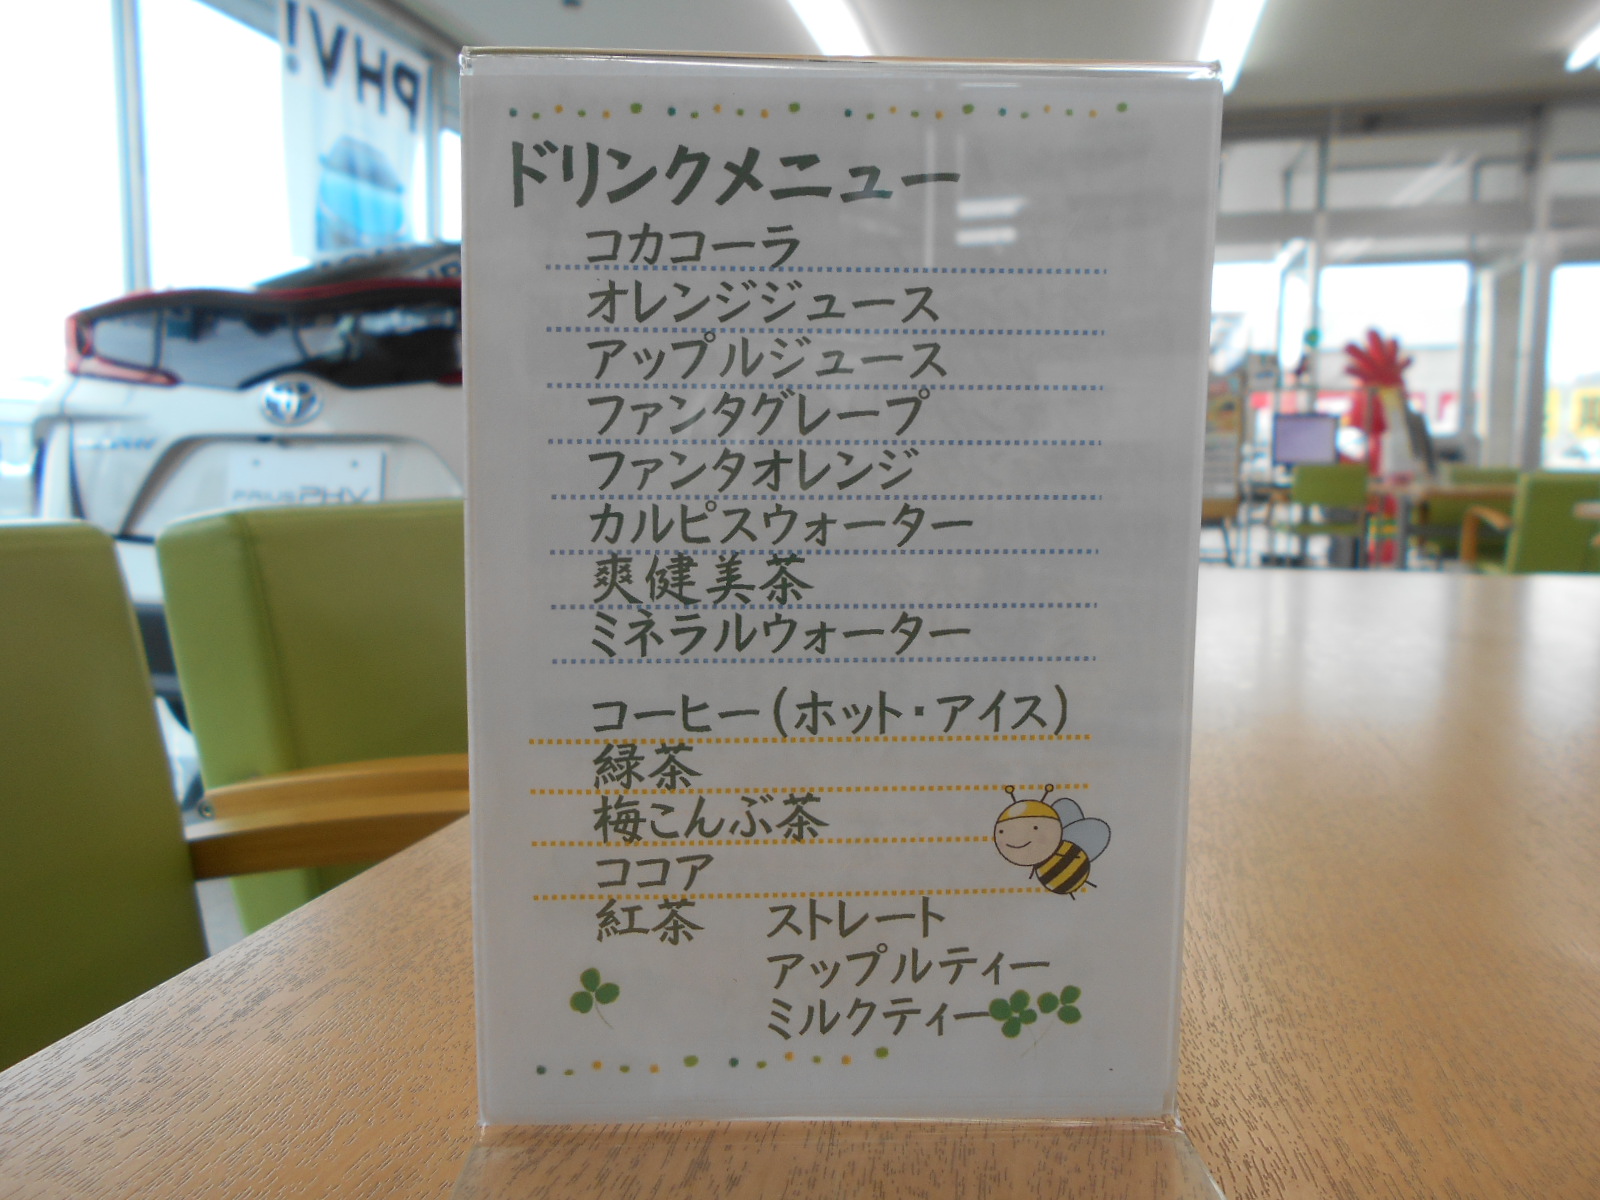 PHV!
ドリンクメニュー
コカコーラ
オレンジジュース
アップルジュース
ファンタグレープ
ファンタオレンジ
カルピスウォーター
爽健美茶
ミネラルウォーター
コーヒー(ホット・アイス)
緑茶
梅こんぶ茶
ココア
紅茶 ストレート
アップルティー
ミルクティー
PRIUSPHV